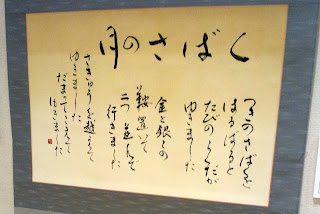 月のさばく
つきのさばくを
はるばると
たびのらくだが
ゆきました
金と銀との
鞍置いて
二つ並んで
行きました
さきゅうを越えて
ゆきました
だまってこえて
ゆきました